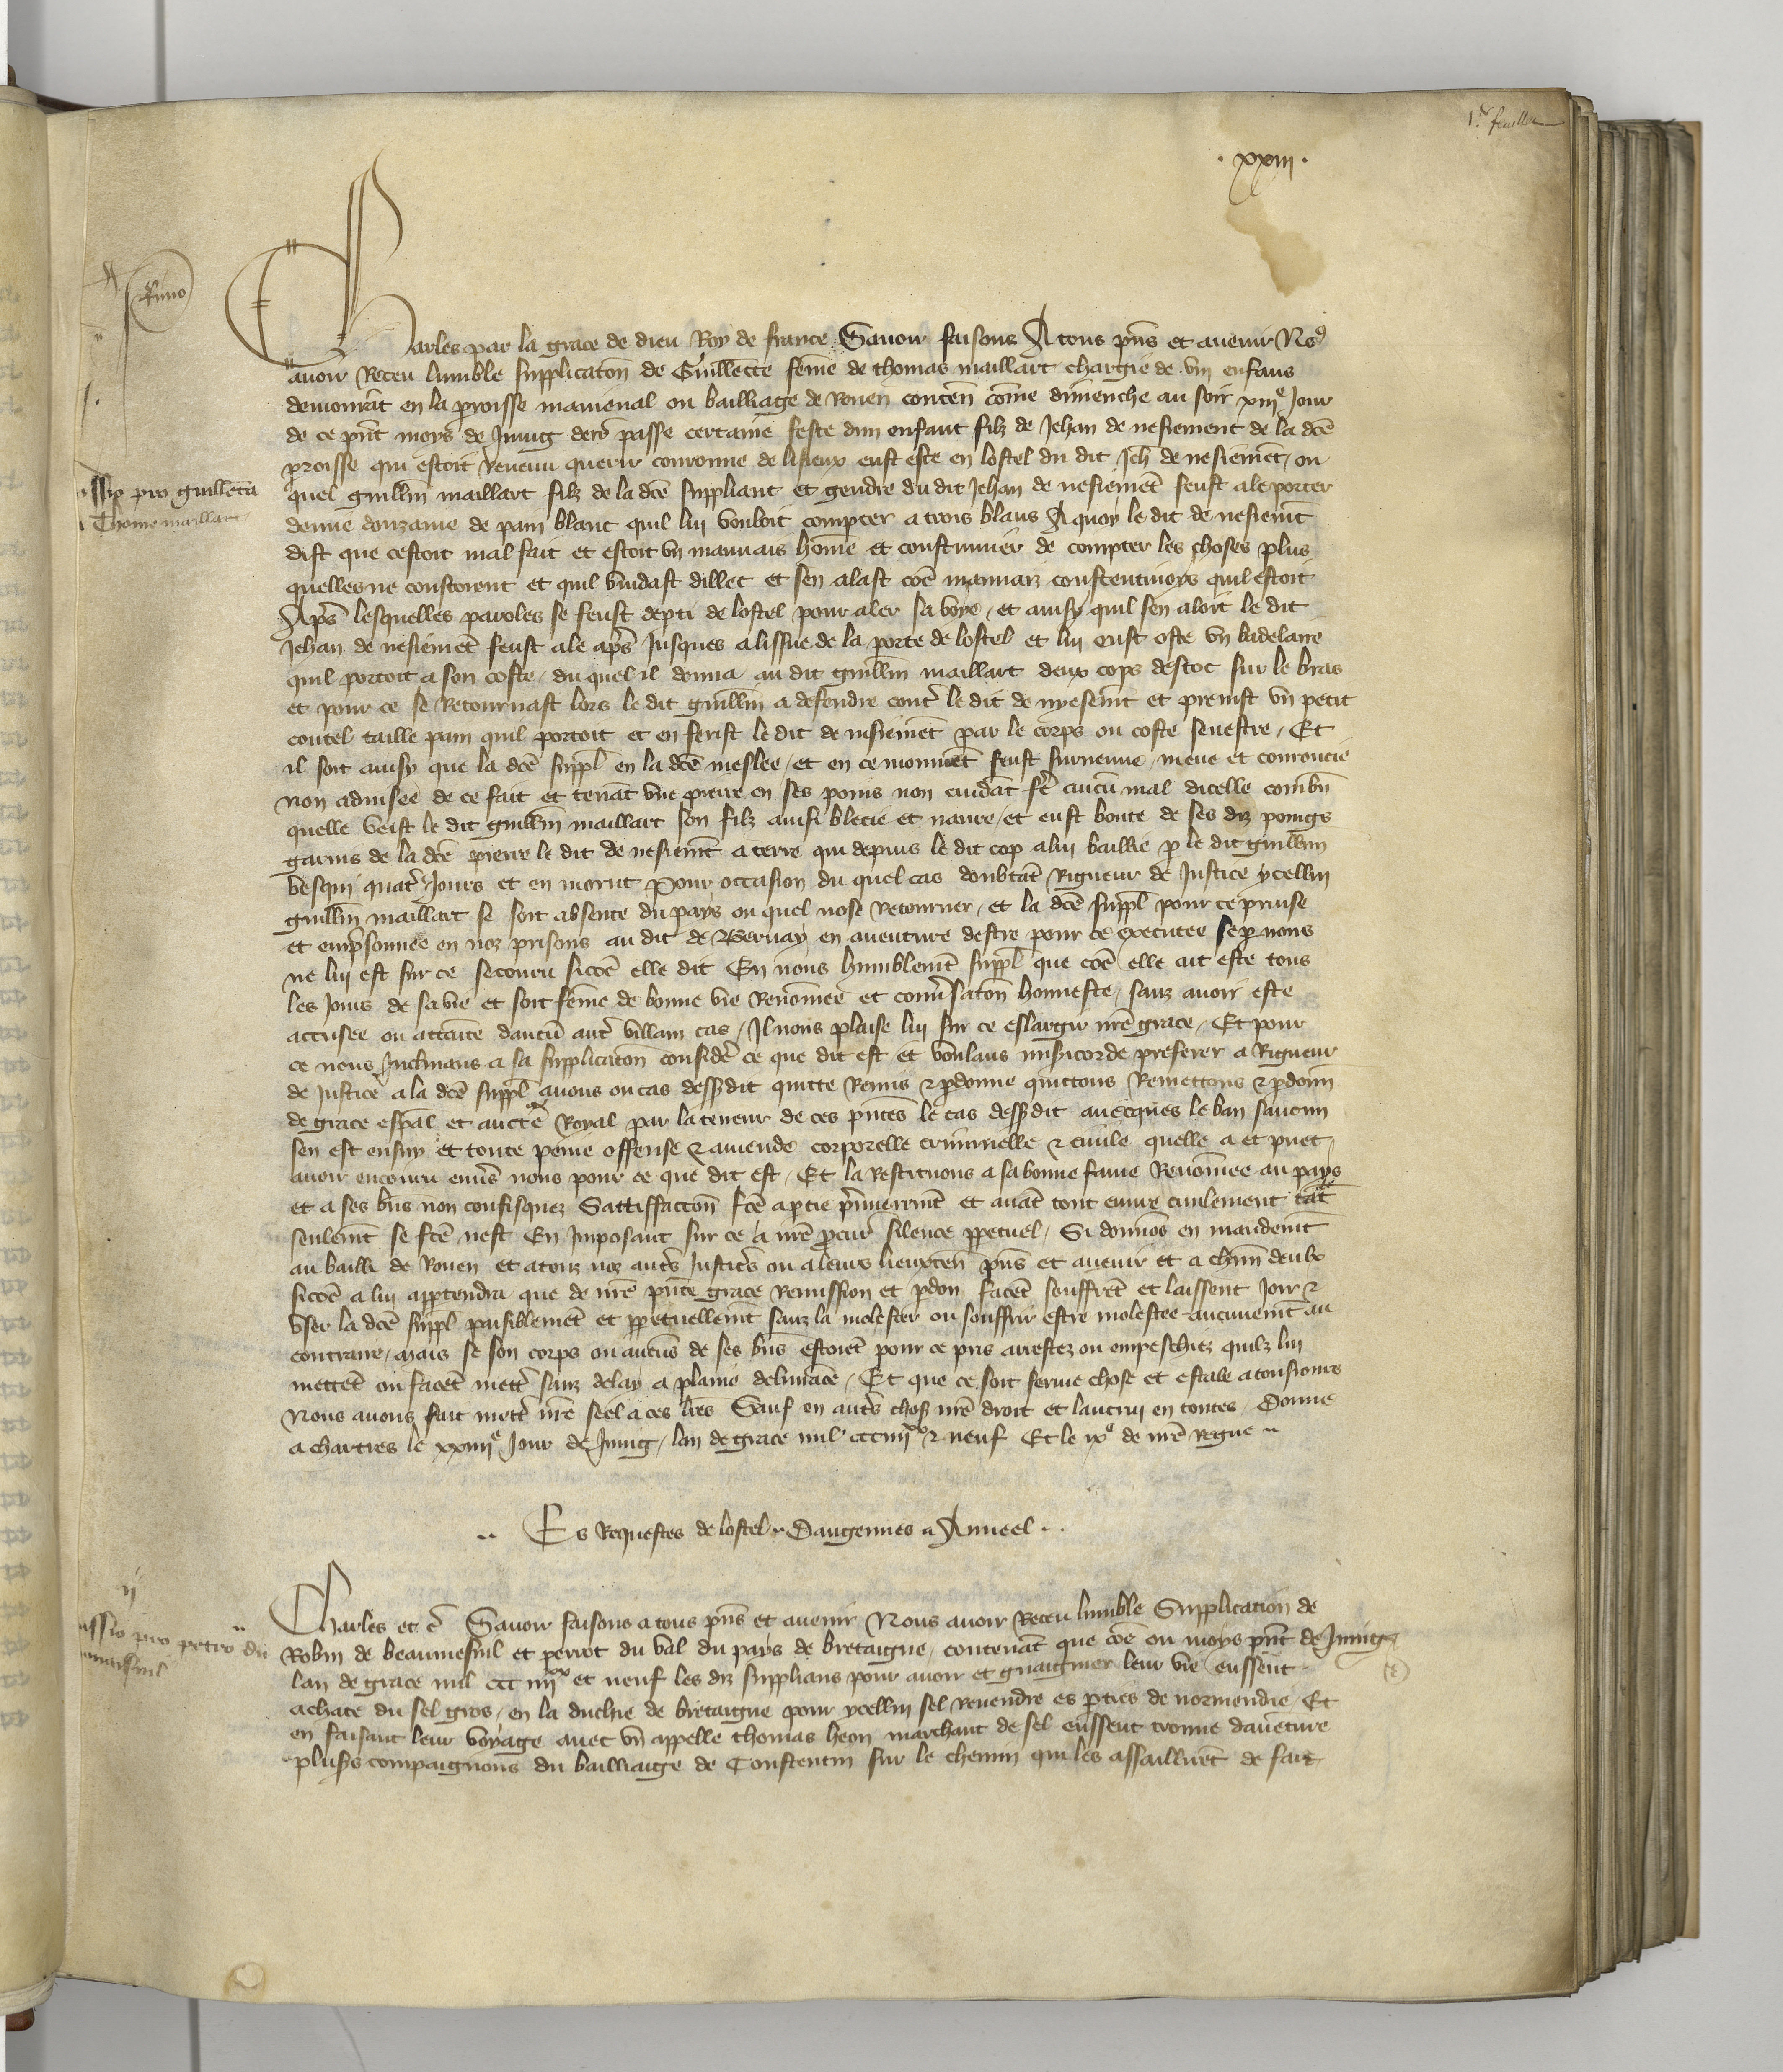 1er feuillet
. xxiii .
Charles par la grace de dieu Roy de france Savoir faisons A tous pñs et avenir Nos
avoir Receu lumble supplicatoñ de Guillecte fem̃e de thomas maillart chargie de viii enfans
demourãt en la proisse maimenal ou bailliage de Rouen conteñ com̃e dimenche au soir xiiie Jour
de ce pñt moys de Juing derr passe certaine feste dun enfant filz de Jehan de nesiement de la dcẽ
proisse qui estoit Revenu querir couronne de lisieux eust este en lostel du dit Jeh de nesiemẽt / ou
quel guillm̃ maillart filz de la dcẽ suppliant et gendre du dit Jehan de nesiemẽt feust ale porter
demie douzaine de pain blanc quil lui vouloit compter a trois blans A quoy le dit de nesiemt̃
dist que cestoit mal fait et estoit vn mauvais hom̃e et coustumier de compter les choses plus
quelles ne coustoient et quil vuidast dillec et sen alast cõe mauvaiz coustentinoys quil estoit
Apr̃s lesquelles paroles se feust dep̃ti de lostel pour aler sa voye / et ainsy quil sen aloit le dit
Jehan de nesiemẽt feust ale apr̃s Jusques a lissue de la porte de lostel et lui eust oste vn badelaire
quil portoit a son coste / du quel il donna au dit guillm̃ maillart deux cops destoc sur le bras
et pour ce se Retournast lors le dit guillm̃ a defendre contr̃ le dit de nyesemt̃ et prenist vn petit
coutel taille pain quil portoit et en ferist le dit de nisiemẽt par le corps ou coste senestre / Et
il soit ainsy que la dcẽ suppl̃ en la dcẽ meslee / et en ce moumẽt feust survenue / meue et couroucie
non advisee de ce fait et tenãt vne pierre en ses poins non cuidãt fr̃e aucũ mal dicelle combñ
quelle veist le dit guillm̃ maillart son filz ainsi blecie et navre / et eust boute de ses diz poings
garnis de la dcẽ pierre le dit de nesiemt̃ a terre qui depuis le dit cop a lui baillie p le dit guillm̃
vesqui quatr̃ Jours et en morut Pour occasion du quel cas doubtãt Rigueur de Justice ycellui
guillm̃ maillart se soit absente du pays ou quel nose Retourner / et la dcẽ suppl̃ pour ce prinse
et empr̃sonnee en noz prisons au dit de Bernay en aventure destre pour ce executee se p nous
ne lui est sur ce secouru sicõe elle dit En nous humblemt̃ suppl̃ que cõe elle ait este tous
les Jours de sa vie et soit fem̃e de bonne vie Renom̃ee et conv̾satoñ honneste / sanz avoir este
accusee ou attainte daucũ autr̃ villain cas / Il nous plaise lui sur ce eslargir nr̃e grace / Et pour
ce nous Inclinans a sa supplicatoñ considẽ ce que dit est et voulans mis̾icorde preferer a Rigueur
de Justice a la dcẽ suppl̃ avons ou cas dessdit quitte Remis & pdonne quittons Remettons & pdonñ
de grace esp̃al et auctẽ Royal par la teneur de ces pñtes le cas dessdit avecques le ban saucun
sen est ensuy et toute peine offense & amende corporelle criminelle & civile quelle a et puet
avoir encouru env̾s nous pour ce que dit est / Et la Restituons a sa bonne fame Renom̃ee au pays
et a ses bñs non confisquez Sattiffactoñ fcẽ a ptie pr̃mieremt̃ et avãt tout euvre civilement tãt
seulemt̃ se fcẽ nest En Imposant sur ce a nr̃e pcur̃ silence ppetuel / Si donnõs en mandemt̃
au bailli de Rouen et a touz noz autr̃s Justicr̃s ou a leurs lieuxteñ pñs et avenir et a chũn deulx
sicõe a lui apptendra que de nr̃e pñte grace Remission et pdon facẽt seuffrẽt et laissent Joir &
vser la dcẽ suppl̃ paisiblemẽt et ppetuellemt̃ sanz la molester ou souffrir estre molestee aucunemt̃ au
contraire / mais se son corps ou aucũs de ses bñs estoiẽt pour ce pris arrestez ou empeschiez quilz lui
mettẽt ou facẽt mettr̃ sanz delay a plaine delivrãce / Et que ce soit ferme chose et estable a tousjours
Nous avons fait mettr̃ nr̃e seel a ces lr̃es Sauf en autr̃s chos̾ nr̃e droit et lautrui en toutes / Donne
a chartres le xxiiiie Jour de Juing / lan de grace mil ccc iiiixx & neuf Et le ixe de nr̃e Regne
Es Requestes de lostel Dangennes Anneel
Charles et c̃ Savoir faisons a tous pñs et avenir Nous avoir Receu lumble Supplication de
Robin de beaumesnil et perrot du val du pays de bretaigne / contenãt que cõe ou moys pñt de Juing
lan de grace mil ccc iiiixx et neuf les diz supplians pour avoir et guaignier leur vie eussent
achate du sel gros / en la duchie de bretaigne pour ycellui sel Revendre es pties de normendie / Et
en faisant leur voyage avec vn appelle thomas heon marchant de sel eussent trouve davẽture
plus̾s compaignons du bailliaige de Constentin sur le chemin qui les assaillirẽt de fait
issio pro guilleta
Thome maillart
ii
issio pro petro du